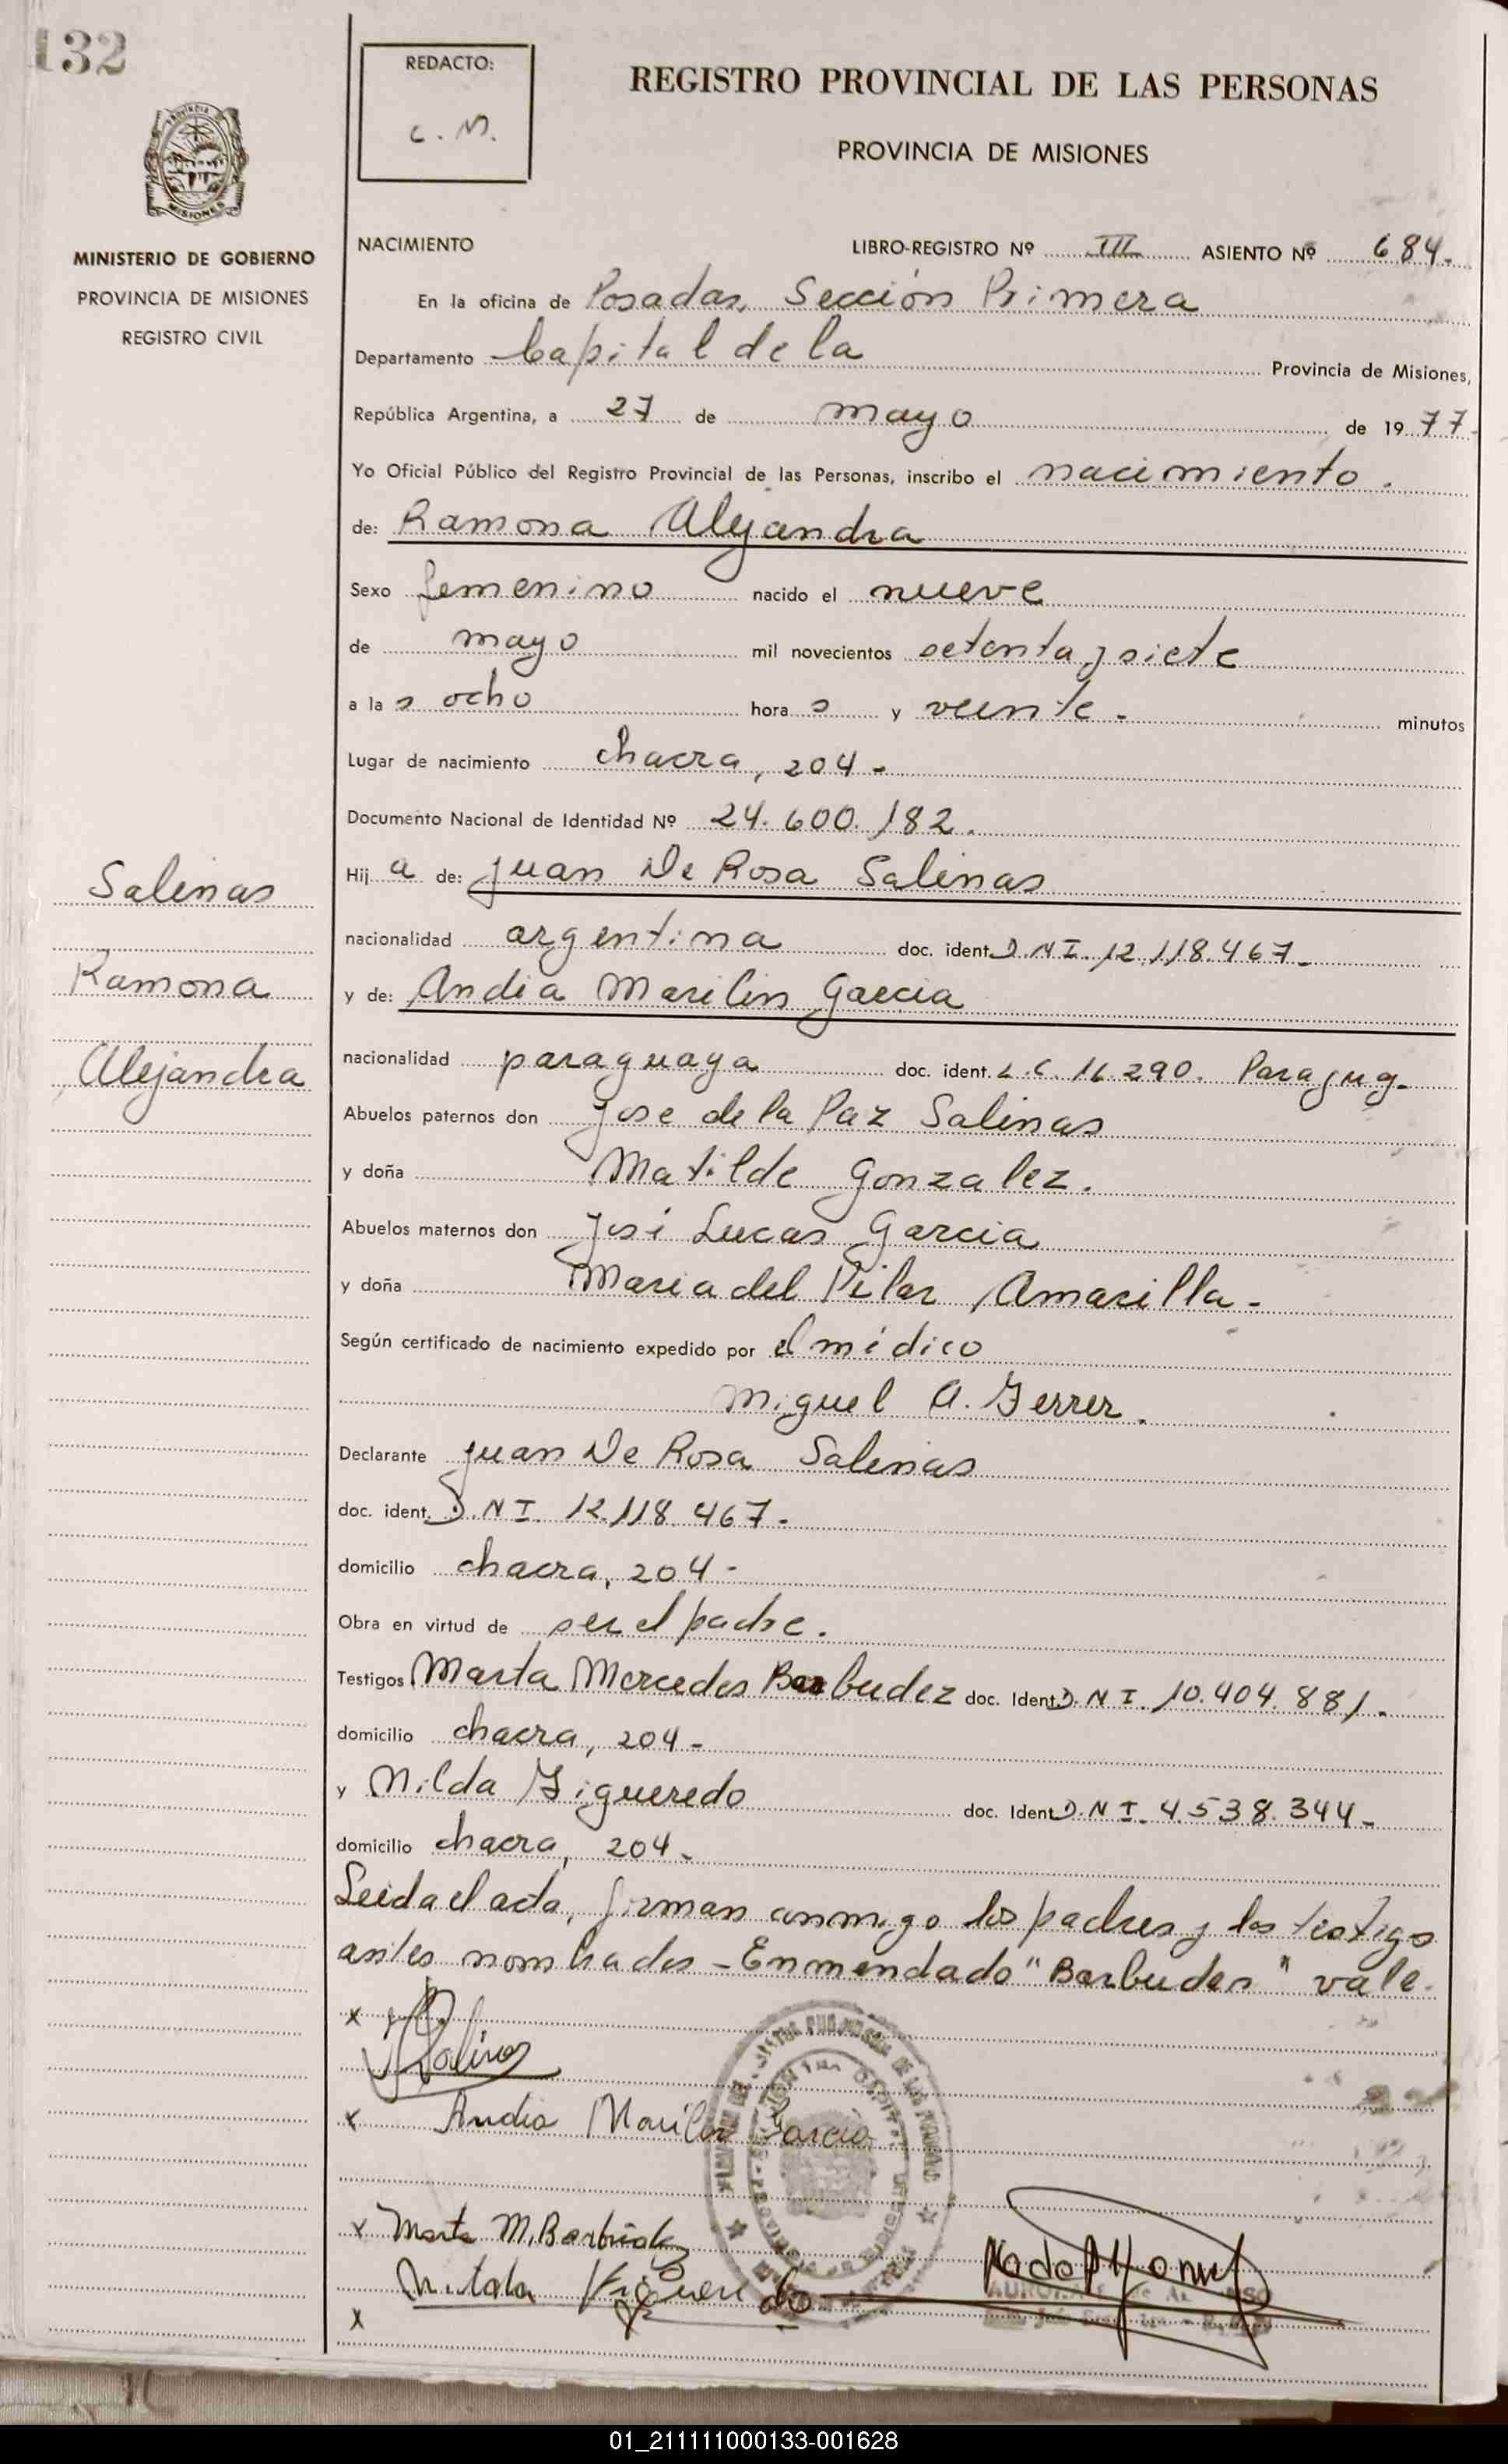 132
REDACTO:
C. M.
REGISTRO PROVINCIAL DE LAS PERSONAS
PROVINCIA DE MISIONES
MISIONES
MINISTERIO DE GOBIERNO
PROVINCIA DE MISIONES
REGISTRO CIVIL
NACIMIENTO LIBRO-REGISTRO Nº III ASIENTO Nº 684.-
En la oficina de Posadas, Sección Primera
Departamento Capital de la Provincia de Misiones,
República Argentina, a 27 de mayo de 1977.
Yo Oficial Público del Registro Provincial de las Personas, inscribo el nacimiento.
de: Ramona Alejandra
Sexo femenino nacido el nueve
de mayo mil novecientos setenta y siete
a las ocho horas y veinte - minutos
Lugar de nacimiento chacra, 204-
Documento Nacional de Identidad Nº 24.600.182.
Hija de: Juan De Rosa Salinas
Salinas
nacionalidad argentina doc. ident. D.N.I. 12.118.467-
y de: Andia Marilin Garcia
Ramona
nacionalidad paraguaya doc. ident. L.C. 16.290. Paraguay-
Alejandra
Abuelos paternos don Jose de la Paz Salinas
y doña Matilde Gonzalez.
Abuelos maternos don José Lucas Garcia
y doña Maria del Pilar Amarilla-
Según certificado de nacimiento expedido por el médico
Miguel A. Ferrer.
Declarante Juan De Rosa Salinas
doc. ident. D.N.I. 12.118.467-
domicilio chacra, 204-
Obra en virtud de ser el padre.
Testigos Marta Mercedes Barbudez doc. Ident. D.N.I. 10.404.881.-
domicilio chacra, 204-
y Nilda Figueredo doc. Ident. D.N.I. 4.538.344-
domicilio chacra, 204-
Leida el acta, firman conmigo los padres y los testigo
antes nombrados - Enmendado "Barbudez" vale.
x Salinas
x Andia Marilin Garcia
x Marta M. Barbudez
x
01_211111000133-001628